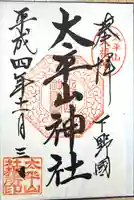 奉拝 下野國
太平山神社
平成四年十一月三日
太平山